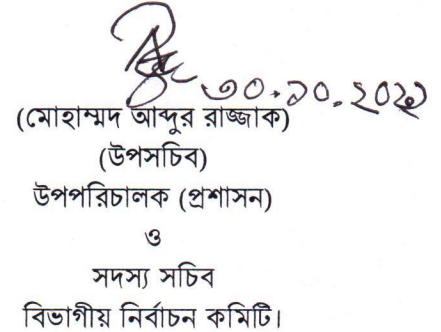 ৩০.১০.২০২২
(মোহাম্মদ আব্দুর রাজ্জাক)
(উপসচিব)
উপপরিচালক (প্রশাসন)
ও
সদস্য সচিব
বিভাগীয় নির্বাচন কমিটি।